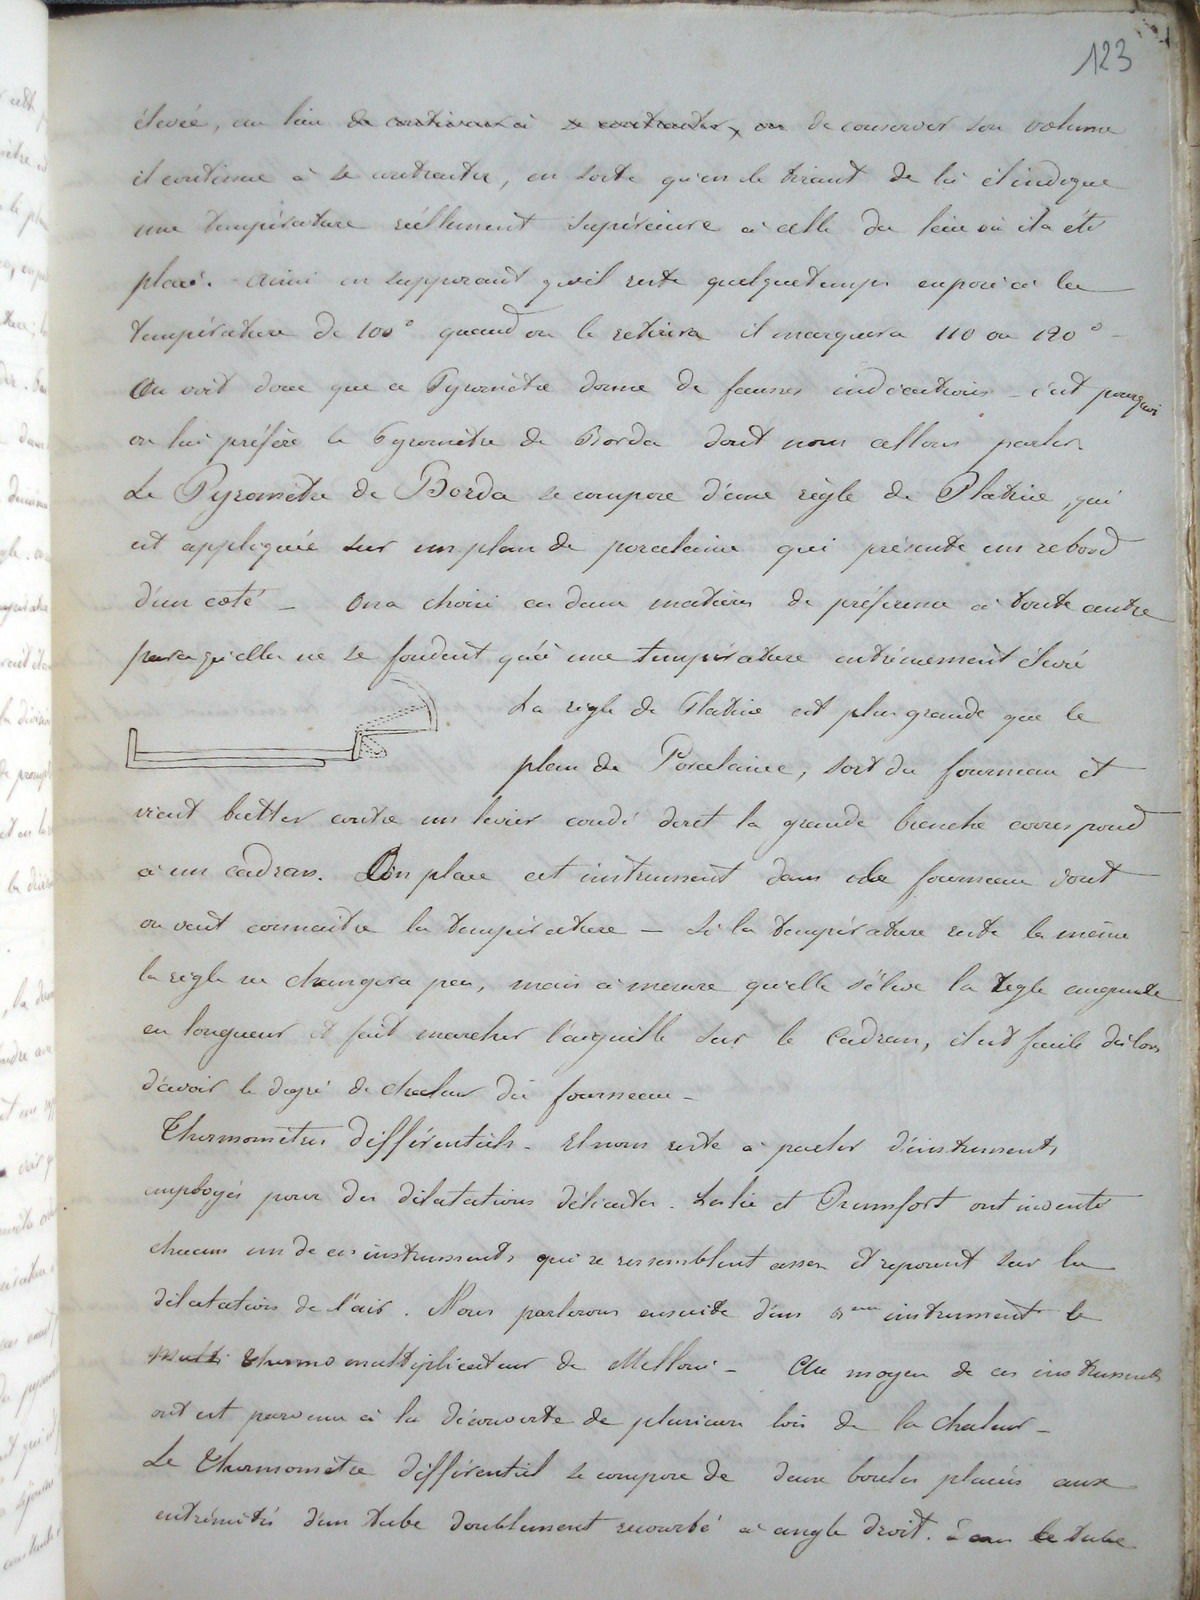 123
élevée, au lieu de continuer à se contracter, ou de conserver son volume
il continue à se contracter, en sorte qu'en le tirant de là il indique
une température réellement supérieure à celle du lieu où il a été
placé. Ainsi en supposant qu'il reste quelque temps exposé à la
température de 100° quand on le retirera il marquera 110 ou 120° -
On voit donc que ce Pyromètre donne de fausses indications - c'est pourquoi
on lui préfère le Pyromètre de Borda dont nous allons parler.
Le Pyromètre de Borda se compose d'une règle de Platine, qui
est appliquée sur un plan de porcelaine qui présente un rebord
d'un coté - On a choisi ces deux matières de préférence à toute autre
parce qu'elles ne se fondent qu'à une température extrêmement élevée
La règle de Platine est plus grande que le
plan de Porcelaine, sort du fourneau et
vient butter contre un levier coudé dont la grande branche correspond
à un cadran. On place cet instrument dans le fourneau dont
on veut connaître la température - si la température reste la même
la règle ne changera pas, mais à mesure qu'elle s'élève la règle augmente
en longueur et fait marcher l'aiguille sur le Cadran, il est facile dès lors
d'avoir le degré de chaleur du fourneau -
Thermomètres différentiels - Il nous reste à parler d'instruments
employés pour des dilatations délicates. Leslie et Rumfort ont inventé
chacun un de ces instruments qui se ressemblent assez et reposent sur la
dilatation de l'air. Nous parlerons ensuite d'un 3eme instrument le
Multi Thermo multiplicateur de Melloni - Au moyen de ces instruments
ont est parvenu à la découverte de plusieurs lois de la chaleur -
Le Thermomètre différentiel se compose de deux boules placées aux
extrémités d'un tube doublement recourbé à angle droit. Dans le tube